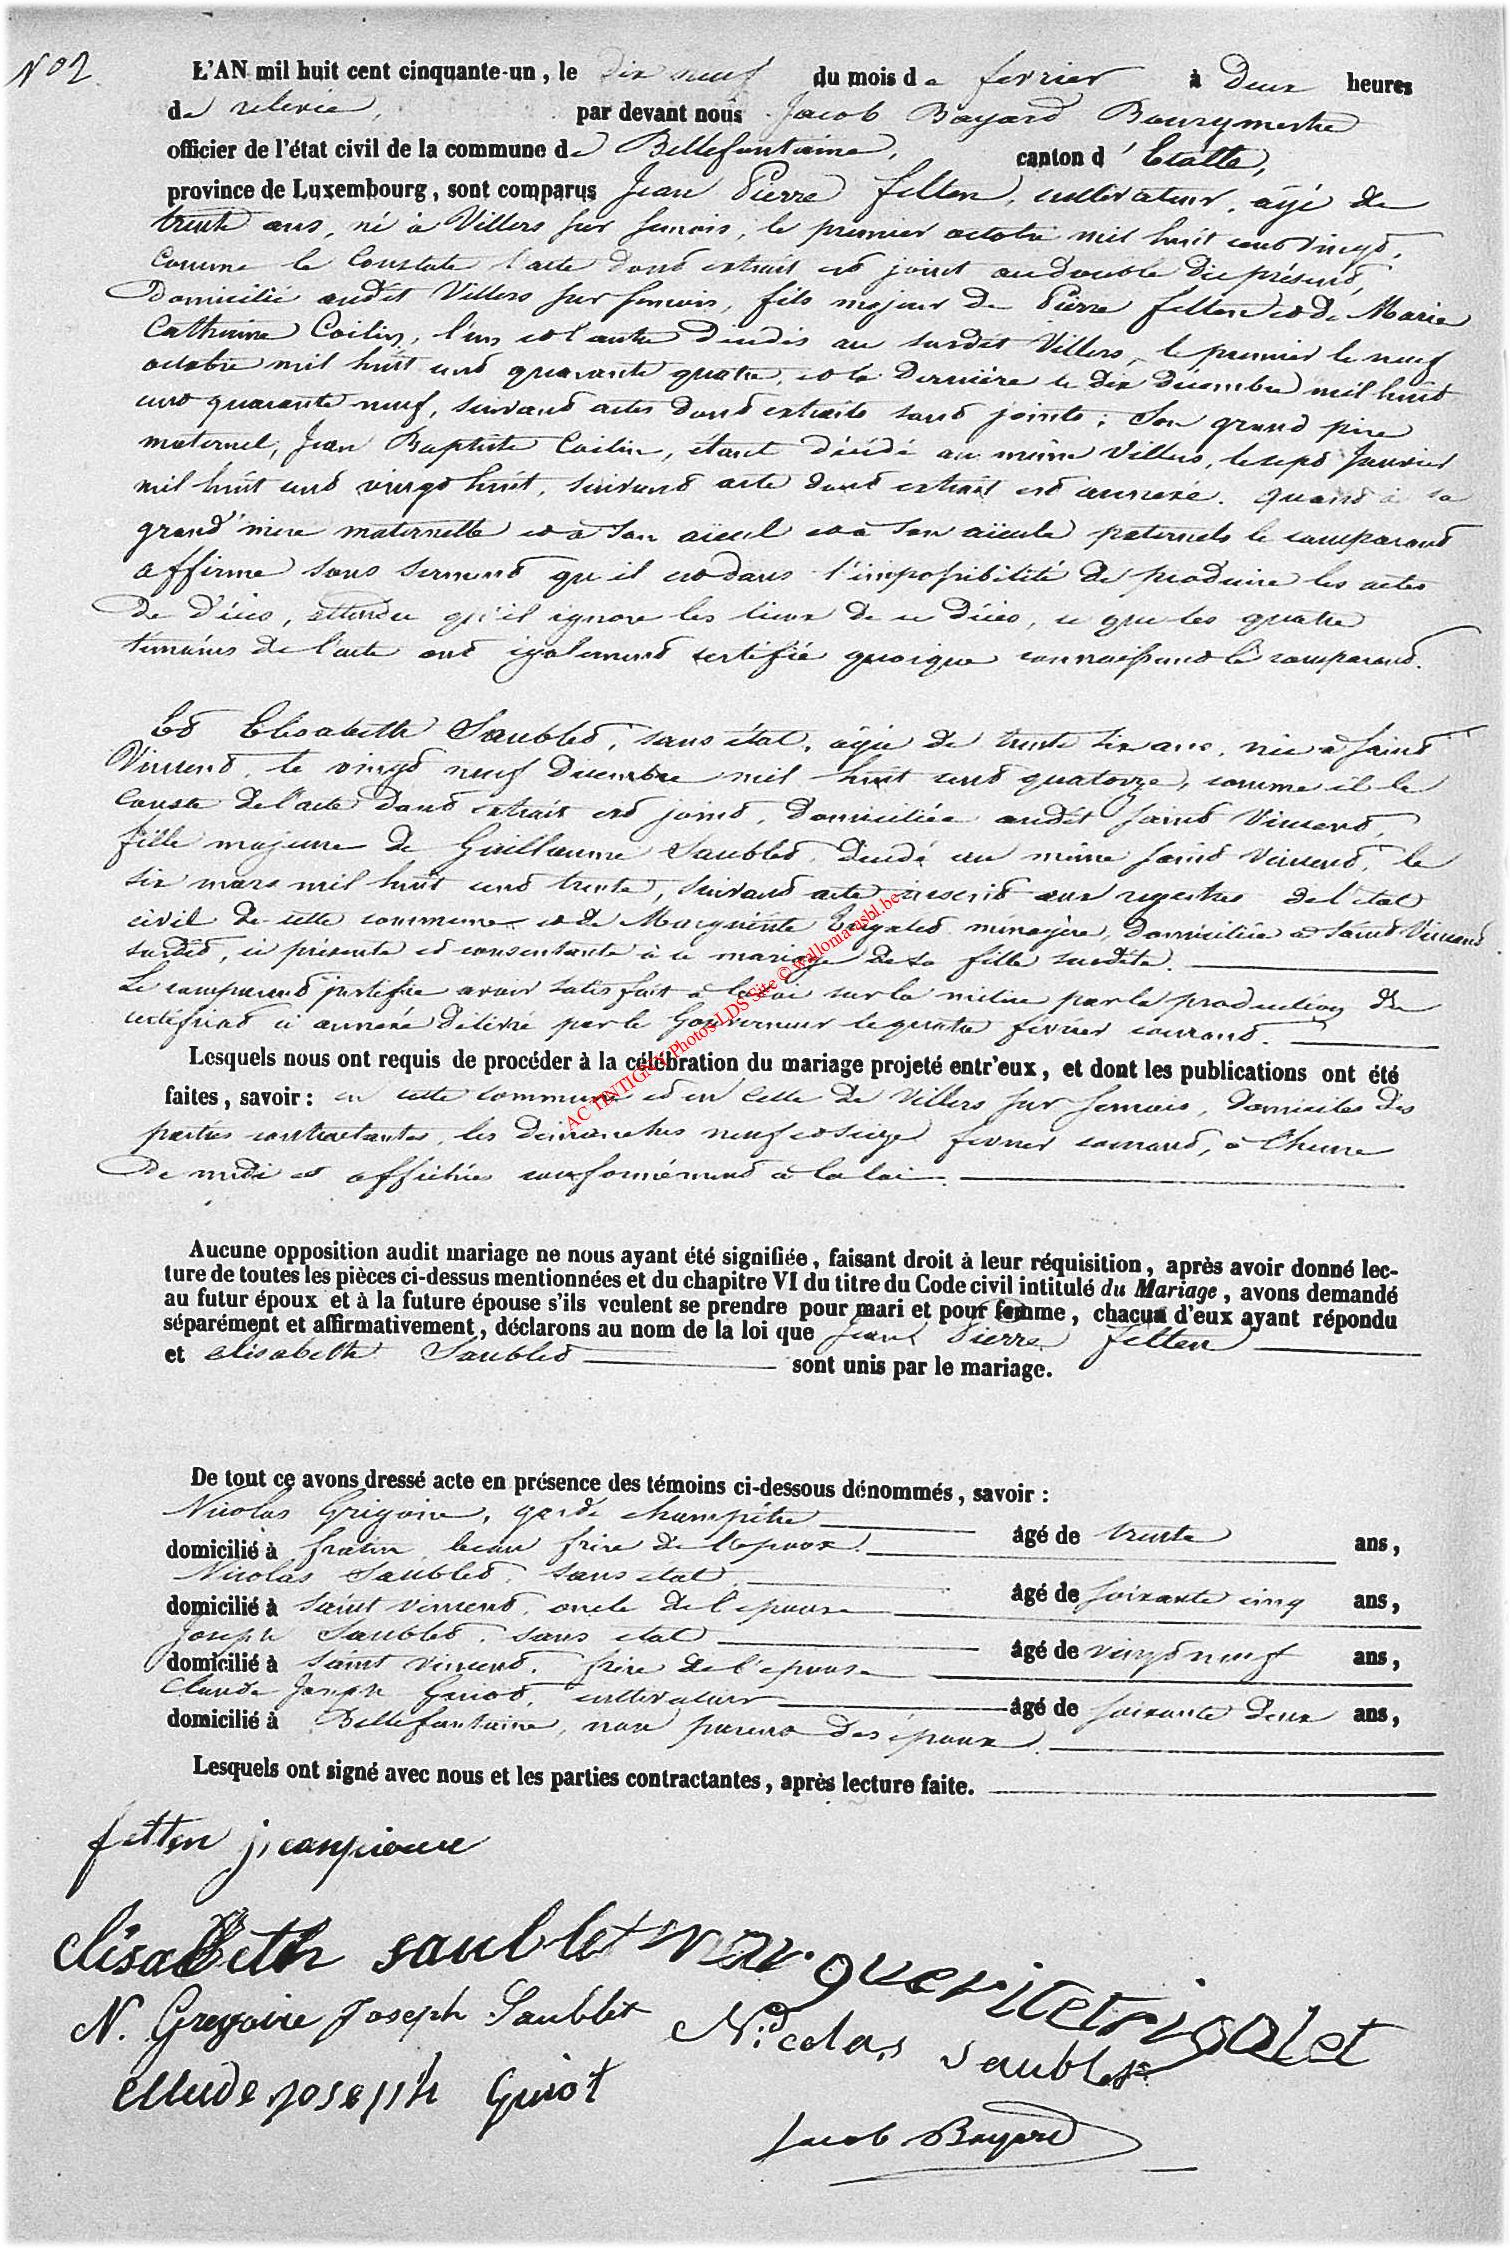 N° 2
L'AN mil huit cent cinquante-un, le dix neuf du mois de fevrier à Deux heures
de relevée, par devant nous Jacob Bayard Bourgmestre
officier de l'état civil de la commune de Bellefontaine, canton d'Etalle,
province de Luxembourg, sont comparus Jean Pierre Felten, cultivateur, âgé de
trente ans, né à Villers sur Semois, le premier octobre mil huit cent vingt,
comme le constate l'acte dont extrait est joint au double du présent,
Domicilié audit Villers sur Semois, fils majeur de Pierre Felten et de Marie
Catherine Coilin, l'un et l'autre décédés au susdit Villers, le premier le neuf
octobre mil huit cent quarante quatre, et la dernière le dix décembre mil huit
cent quarante neuf, suivant actes dont extraits sont joints; Son grand père
maternel, Jean Baptiste Coilin, étant décédé au même Villers, le sept Janvier
mil huit cent vingt huit, suivant acte dont extrait est annexé. Quant à sa
grand'mère maternelle et à son aïeul et à son aïeule paternels le comparant
affirme sous serment qu'il est dans l'impossibilité de produire les actes
de décès, attendu qu'il ignore les lieux de ce décès, ce que les quatre
témoins de l'acte ont également certifié quoique connaissant le comparant.
Et Elisabeth Saublet, sans état, âgée de trente six ans, née à Saint
Vincent, le vingt neuf Décembre mil huit cent quatorze, comme il le
conste de l'acte dont extrait est joint, domiciliée audit Saint Vincent,
fille majeure de Guillaume Saublet, décédé au même Saint Vincent, le
six mars mil huit cent trente, suivant acte inscrit aux registres de l'état
civil de cette commune et de Marguerite Trigalet, ménagère, domiciliée à Saint Vincent
susdit, ci présente et consentante à ce mariage de sa fille susdite.
Le comparant justifie avoir satisfait à la loi sur la milice par la production du
certificat ci annexé délivré par le Gouverneur le quatre février courant.
Lesquels nous ont requis de procéder à la célébration du mariage projeté entr'eux, et dont les publications ont été
faites, savoir: en cette commune et en celle de Villers sur Semois, domiciles des
parties contractantes, les dimanches neuf et seize fevrier courant, à l'heure
de midi et affichées conformément à la loi.
Aucune opposition audit mariage ne nous ayant été signifiée, faisant droit à leur réquisition, après avoir donné lec-
ture de toutes les pièces ci-dessus mentionnées et du chapitre VI du titre du Code civil intitulé du Mariage, avons demandé
au futur époux et à la future épouse s'ils veulent se prendre pour mari et pour femme, chacun d'eux ayant répondu
séparément et affirmativement, déclarons au nom de la loi que Jean Pierre Felten
et elisabeth Saublet sont unis par le mariage.
De tout ce avons dressé acte en présence des témoins ci-dessous dénommés, savoir:
Nicolas Grégoire, garde champêtre âgé de trente ans,
domicilié à fratin, beau frère de l'époux.
Nicolas Saublet, sans état, âgé de soixante cinq ans,
domicilié à Saint vincent, oncle de l'épouse
Joseph Saublet, sans état âgé de vingt neuf ans,
domicilié à Saint vincent, frère de l'épouse
Claude Joseph Guiot, cultivateur âgé de soixante deux ans,
domicilié à Bellefontaine, non parent des époux.
Lesquels ont signé avec nous et les parties contractantes, après lecture faite.
felten jeanpierre
elisabeth saublet marguerite trigalet
N. Gregoire Joseph Saublet Nicolas saublet
Claude joseph Guiot
Jacob Bayard
AC TINTIGNY Photos LDS Site © wallonia-asbl.be